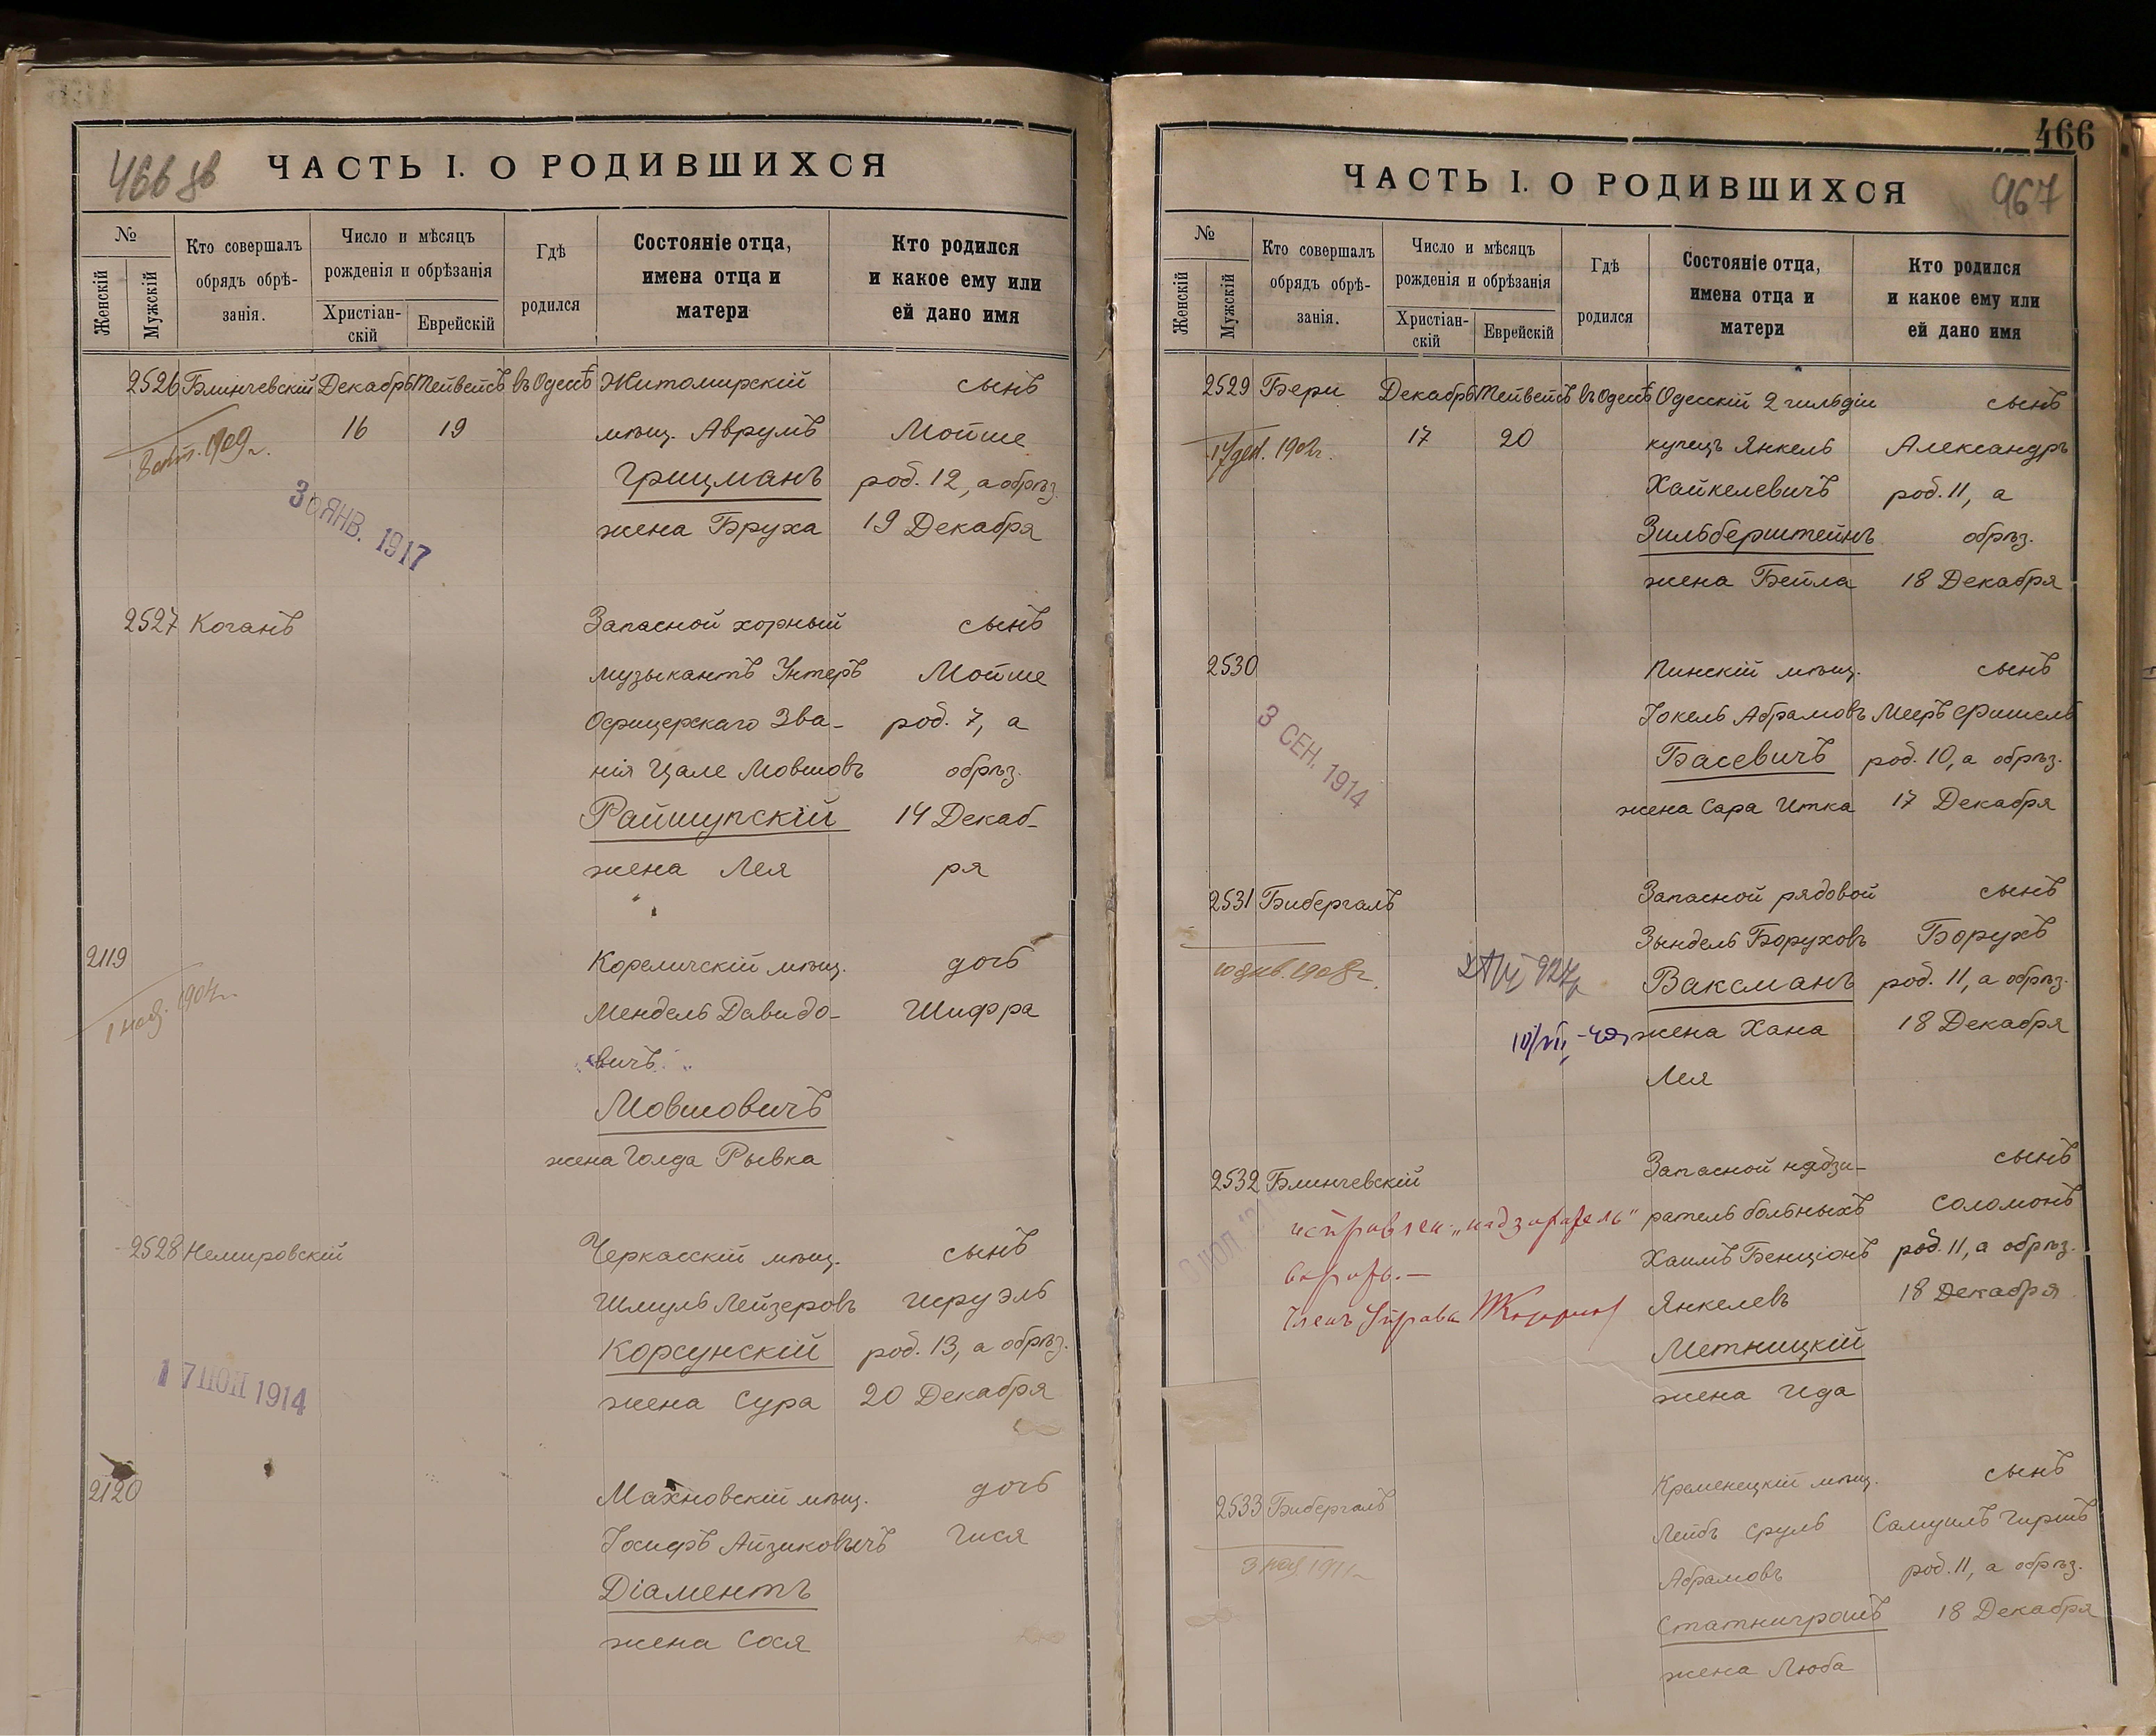 466 об
ЧАСТЬ I. О РОДИВШИХСЯ
№
Женскій
Мужскій
Кто совершалъ
обрядъ обрѣ-
занія.
Число и мѣсяцъ
рожденія и обрѣзанія
Христіан-
скій
Еврейскій
Гдѣ
родился
Состояніе отца,
имена отца и
матери
Кто родился
и какое ему или
ей дано имя
2526 Блинчевскій Декабрь Тейвейсъ въ Одессѣ Житомирскій сынъ
16 19 мѣщ. Аврумъ Мойше
1909 г.
Грицманъ род. 12, а обрѣз.
30 ЯНВ. 1917
жена Бруха 19 Декабря
2527 Коганъ Запасной хорный сынъ
музыкантъ Унтеръ Мойше
Офицерскаго Зва- род. 7, а
нія Цале Мовшовъ обрѣз.
Райшупскій 14 Декаб-
жена Лея ря
2119 Кореличскій мѣщ. дочь
Мендель Давидо- Шифра
вичъ
Мовшовичъ
жена Голда Рывка
2528 Немировскій Черкасскій мѣщ. сынъ
Шмуль Лейзеровъ Исруэль
Корсунскій род. 13, а обрѣз.
17 ІЮЛ 1914
жена Сура 20 Декабря
2120 Махновскій мѣщ. дочь
Іосифъ Айзиковичъ Гися
Діаментъ
жена Сося
466
ЧАСТЬ I. О РОДИВШИХСЯ
967
№
Женскій
Мужскій
Кто совершалъ
обрядъ обрѣ-
занія.
Число и мѣсяцъ
рожденія и обрѣзанія
Христіан-
скій
Еврейскій
Гдѣ
родился
Состояніе отца,
имена отца и
матери
Кто родился
и какое ему или
ей дано имя
2529 Бери Декабрь Тейвейсъ въ Одессѣ Одесскій 2 гильдіи сынъ
17 20 купецъ Янкель Александръ
Хайкелевичъ род. 11, а
Зильберштейнъ обрѣз.
жена Бейла 18 Декабря
2530 Пинскій мѣщ. сынъ
Іокель Абрамовъ Мееръ Фишель
3 СЕН. 1914
Басевичъ род. 10, а обрѣз.
жена Сара Итка 17 Декабря
2531 Бибергалъ Запасной рядовой сынъ
Зындель Боруховъ Борухъ
янв. 1908 г.
Ваксманъ род. 11, а обрѣз.
жена Хана 18 Декабря
Лея
2532 Блинчевскій Запасной надзи- сынъ
исправлен. „надзиратель" ратель больныхъ Соломонъ
Хаимъ Бенціонъ род. 11, а обрѣз.
вѣрить.—
Членъ Управы
Янкелевъ 18 Декабря
Метницкій
жена Ида
2533 Бибергалъ Кременецкій мѣщ. сынъ
Лейбъ Сруль Самуилъ Гиршъ
Абрамовъ род. 11, а обрѣз.
Статнигрошъ 18 Декабря
жена Люба